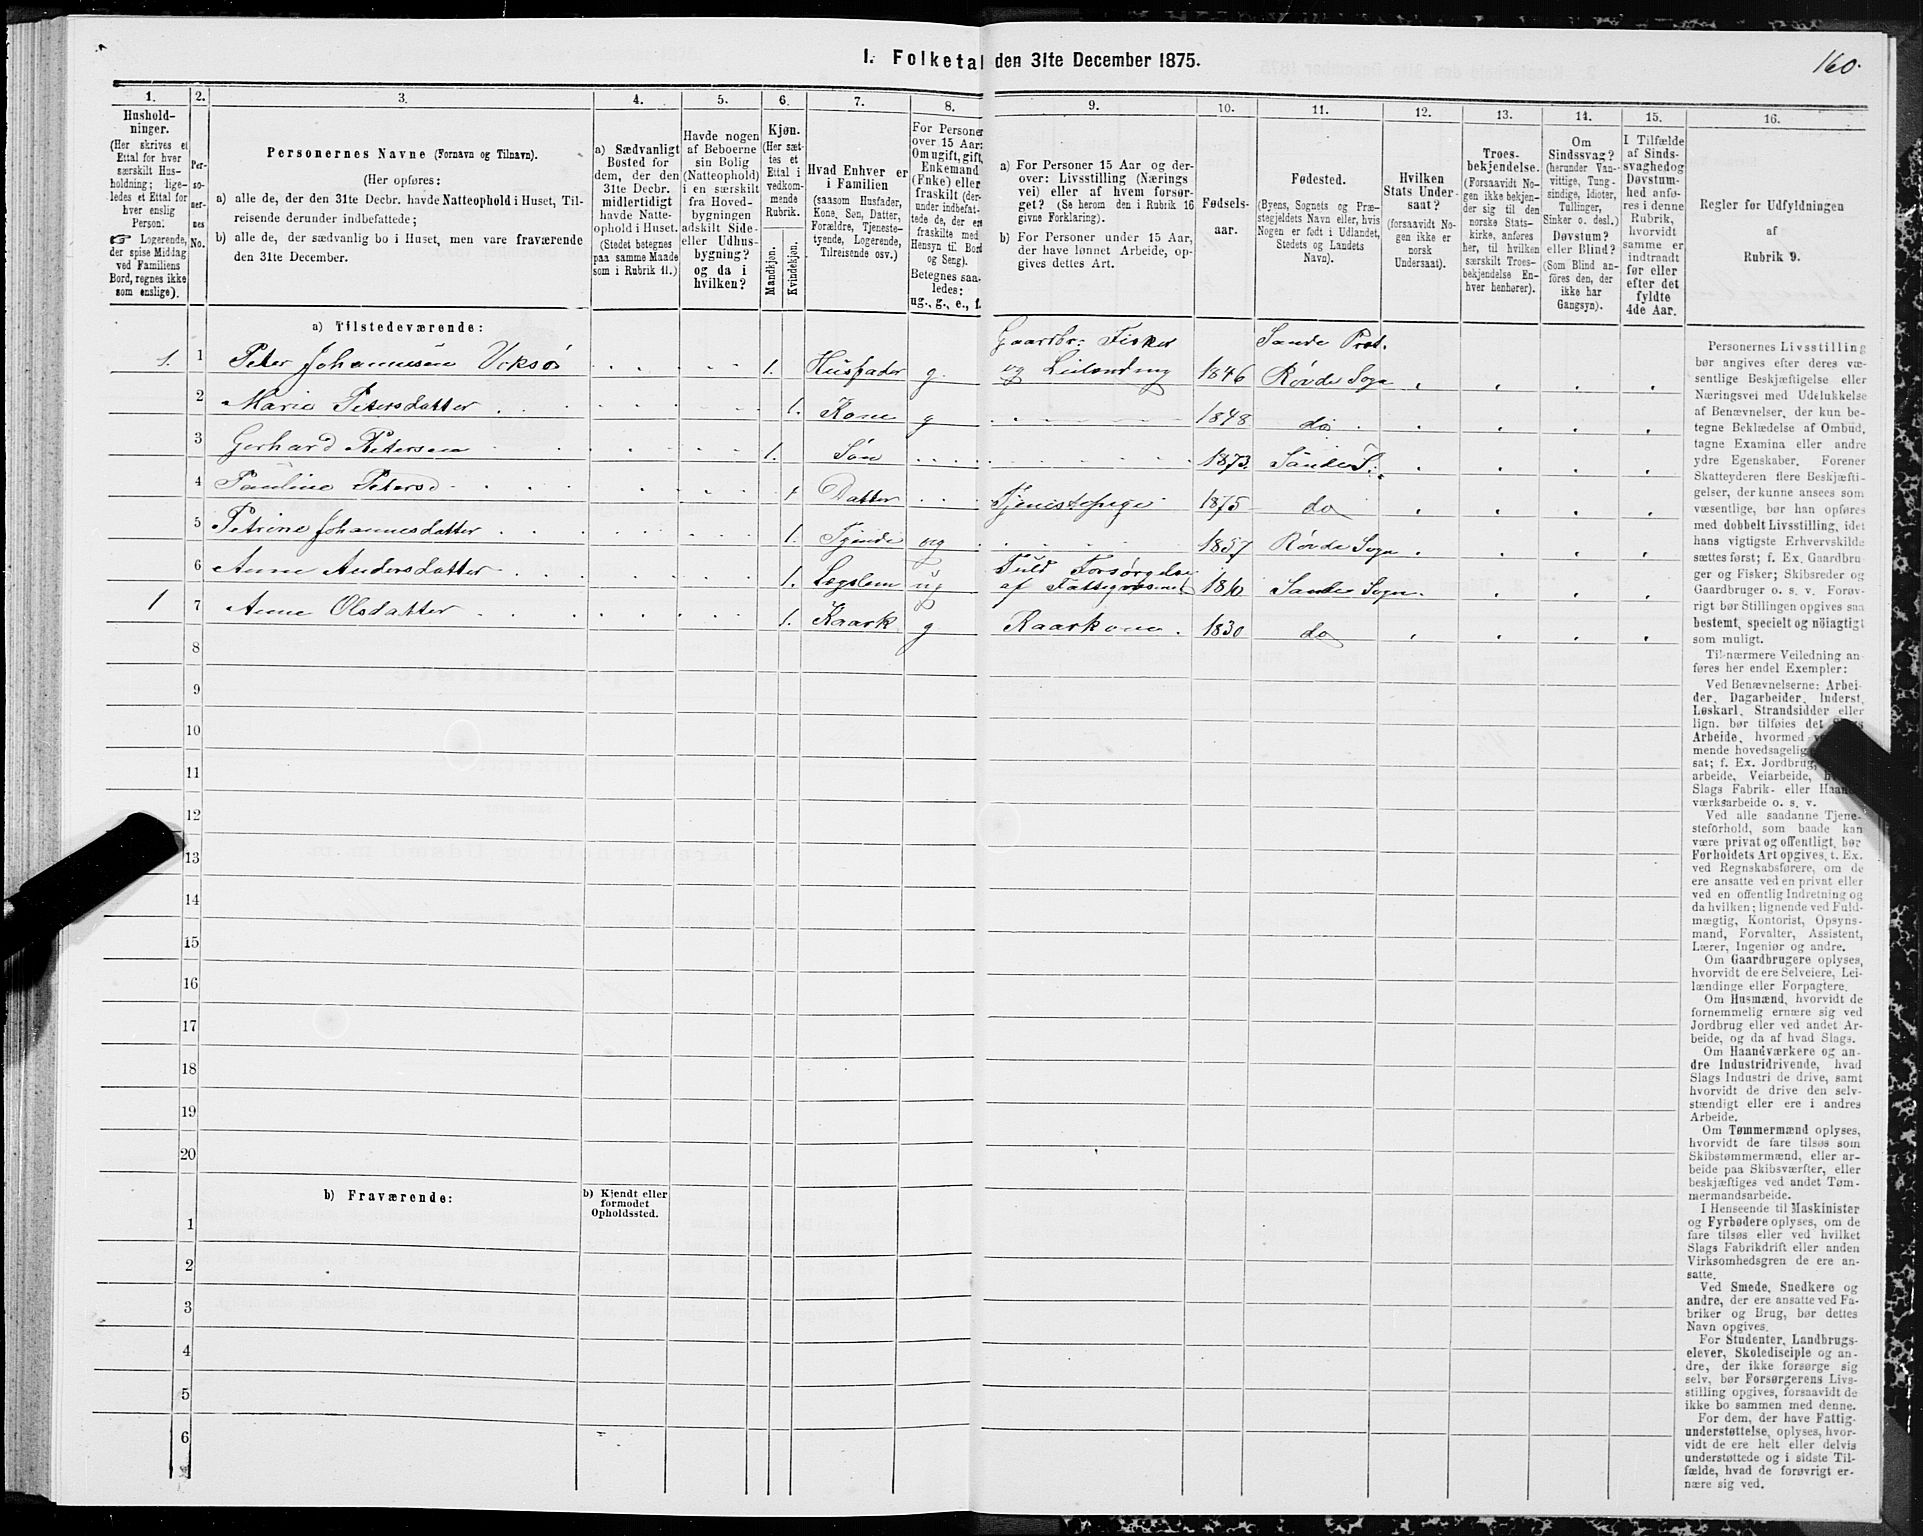 1. Folketal den 31te December 1875.
160.
1.
2.
3.
4.
5.
6.
7.
8.
9.
10.
11.
12.
13.
14.
15.
16.
Hushold-
ninger.
(Her skrives et
Ettal for hver
særskilt Hus-
holdning; lige-
ledes et Ettal for
hver enslig
Person.
☞ Logerende,
der spise Middag
ved Familiens
Bord, regnes ikke
som enslige).
Per-
so-
ner-
nes
No.
Personernes Navne (Fornavn og Tilnavn).
(Her opføres:
a) alle de, der den 31te Decbr. havde Natteophold i Huset, Til-
reisende derunder indbefattede;
b) alle de, der sædvanlig bo i Huset, men vare fraværende
den 31te December.
a) Sædvanligt
Bosted for
dem, der den
31te Decbr.
midlertidigt
havde Natte-
ophold i Huset.
(Stedet betegnes
paa samme Maade
som i Rubrik 11.)
Havde nogen
af Beboerne
sin Bolig
(Natteophold)
i en særskilt
fra Hoved-
bygningen
adskilt Side-
eller Udhus-
bygning?
og da i
hvilken?
Kjøn.
(Her sæt-
tes et
Ettal i
vedkom-
mende
Rubrik.
Mandkjøn.
Kvindekjøn.
Hvad Enhver er
i Familien
(saasom Husfader,
Kone, Søn, Datter,
Forældre, Tjeneste-
tyende, Logerende,
Tilreisende osv.)
For Personer
over 15 Aar:
Om ugift, gift,
Enkemand
(Enke) eller
fraskilt (der-
under indbefat-
tede de, der ere
fraskilte med
Hensyn til Bord
og Seng).
Betegnes saa-
ledes:
ug., g., e., f.
a) For Personer 15 Aar og der-
over: Livsstilling (Nærings
vei) eller af hvem forsør-
get? (Se herom den i Rubrik 16
givne Forklaring).
b) For Personer under 15 Aar,
der have lønnet Arbeide, op-
gives dettes Art.
Fødsels-
aar.
Fødested.
(Byens, Sognets og Præ-
stegjeldets Navn eller, hvis
Nogen er født i Udlandet,
Stedets og Landets
Navn).
Hvilken
Stats Under-
saat?
(forsaavidt No-
gen ikke er
norsk
Undersaat).
Troes-
bekjendelse.
(Forsaavidt No-
gen ikke bekjen-
der sig til den
norske Stats-
kirke, anføres
her, til hvilken
særskilt Troes-
bekjendelse En-
hver henhører).
Om
Sindssvag?
(herunder Van-
vittige, Tung-
sindige, Idioter,
Tullinger,
Sinker o. desl.)
Døvstum?
eller Blind?
(Som Blind an-
føres den, der
ikke har
Gangsyn).
I Tilfælde
af Sinds-
svaghed og
Døvstum-
hed anfø-
res i denne
Rubrik,
hvorvidt
samme er
indtraadt
før eller
efter det
fyldte
4de Aar.
Regler for Udfyldningen
af
Rubrik 9.
a) Tilstedeværende:
1. 1 Peter Johannesen Voksø 1. Husfader g. Gaardbr: Fisker og Leilænding 1846 Sande Prst. Røvde Sogn
2 Marie Petersdatter 1. Kone g 1848 do
3 Gerhard Petersen 1. Søn 1873. Sande S.
4 Pauline Petersd 1 Datter 1875 do
5 Petrine Johannesdatter 1. Tjende ug Tjenestepige 1857 Røvde Sogn
6 Anne Andersdatter 1. Lægslem ug Fuld Forsørgelse af Sande Sogn.
1 7 Anne Olsdatter 1. Kaark g Kaarkone. 1830 do
8
9
10
11
12
13
14
15
16
17
18
19
20
b) Fraværende:
b) Kjendt eller
formodet
Opholdssted.
1
2
3
4
5
6
Personernes Livsstilling
bør angives efter deres væ-
sentlige Beskjæftigelse eller
Næringsvei med Udelukkelse
af Benævnelser, der kun be-
tegne Beklædelse af Ombud,
tagne Examina eller andre
ydre Egenskaber. Forener
Skatteyderen flere Beskjæfti-
gelser, der kunne ansees som
væsentlige, bør han opføres
med dobbelt Livsstilling, idet
hans vigtigste Erhvervskilde
sættes først; f. Ex. Gaardbru-
ger og Fisker; Skibsreder og
Gaardbruger o. s. v. Forøv-
rigt bør Stillingen opgives saa
bestemt, specielt og nøiagtigt
som muligt.
Til nærmere Veiledning an-
føres her endel Exempler:
Ved Benævnelserne: Arbei-
der, Dagarbeider, Inderst,
Løskarl, Strandsidder eller
lign. bør tilføies det Slags
Arbeide, hvormed
mende hovedsagelig
sat; f. Ex. Jordbrug,
arbeide, Veiarbeide,
Slags Fabrik- eller Haand-
værksarbeide o. s. v.
Ved alle saadanne Tjene-
steforhold, som baade kan
være privat og offentligt, bør
Forholdets Art opgives, t. Ex.
ved Regnskabsførere, om de
ere ansatte ved en privat eller
ved en offentlig Indretning og
da hvilken; lignende ved Fuld-
mægtig, Kontorist, Opsyns-
mand, Forvalter, Assistent,
Lærer, Ingeniør og andre.
Om Gaardbrugere oplyses,
hvorvidt de ere Selveiere, Lei-
lændinge eller Forpagtere.
Om Husmænd, hvorvidt de
fornemmelig ernære sig ved
Jordbrug eller ved andet Ar-
beide, og da af hvad Slags.
Om Haandværkere og an-
dre Industridrivende, hvad
Slags Industri de drive, samt
hvorvidt de drive den selv-
stændigt eller ere i andres
Arbeide.
Om Tømmermænd oplyses,
hvorvidt de fare tilsøs som
Skibstømmermænd, eller ar-
beide paa Skibsværfter, eller
beskjæftiges ved andet Tøm-
mermandsarbeide.
I Henseende til Maskinister
og Fyrbødere oplyses, om de
fare tilsøs eller ved hvilket
Slags Fabrikdrift eller anden
Virksomhedsgren de ere an-
satte.
Ved Smede, Snedkere og
andre, der ere ansatte ved Fa-
briker og Brug, bør dettes
Navn opgives.
For Studenter, Landbrugs-
elever, Skoledisciple og an-
dre, der ikke forsørge sig
selv, bør Forsørgerens Livs-
stilling opgives, forsaavidt de
ikke bo sammen med denne.
For dem, der have Fattig-
understøttelse, oplyses, hvor-
vidt de ere helt eller delvis
understøttede og i sidste Til-
fælde, hvad de forøvrigt er-
nære sig ved.